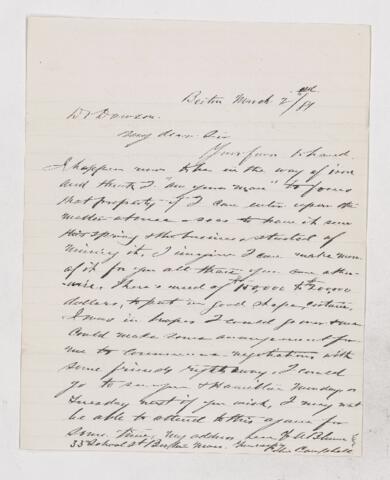 Boston March 2nd/89
Dr Dawson.
My dear Sir
Yours from to hand.
I happen now to be in the way of iron
and think I "am your man" to
that property if I can enter upon the
matter at once so as to have it seen
this spring & the business started of
mining it, I imagine I can make more
of it for you all than you can other-
wise. There's need of 15000 to 20000
dollars, to put in good shape,
I was in hopes I could
could make some arrangement for
me to commence negotiations with
some friends right away. I could
go to see you & Hamilton Monday or
Tuesday next if you wish, I may not
be able to attend to this again for
some time, my address here
33 School St Boston Mass.
Campbell